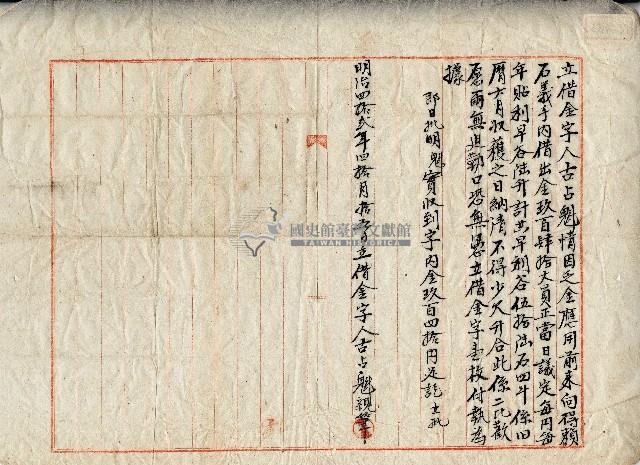 立借金字人古占魁情因乏金應用前來向得賴
石義手內借出金玖百肆拾大員正當日議定每円每
年貼利早谷陸升計共早利谷伍拾陸石四斗係旧
曆六月收穫之日納清不得少欠升合此係二比歡
愿兩無迫勒口恐無憑立借金字壹枚付執為
據
即日批明魁實收到字內金玖百四拾円足訖土批
明治四拾弍年四拾月拾 日立借金字人古占魁親筆
國史館臺灣文獻館
TAIWAN HISTORICA